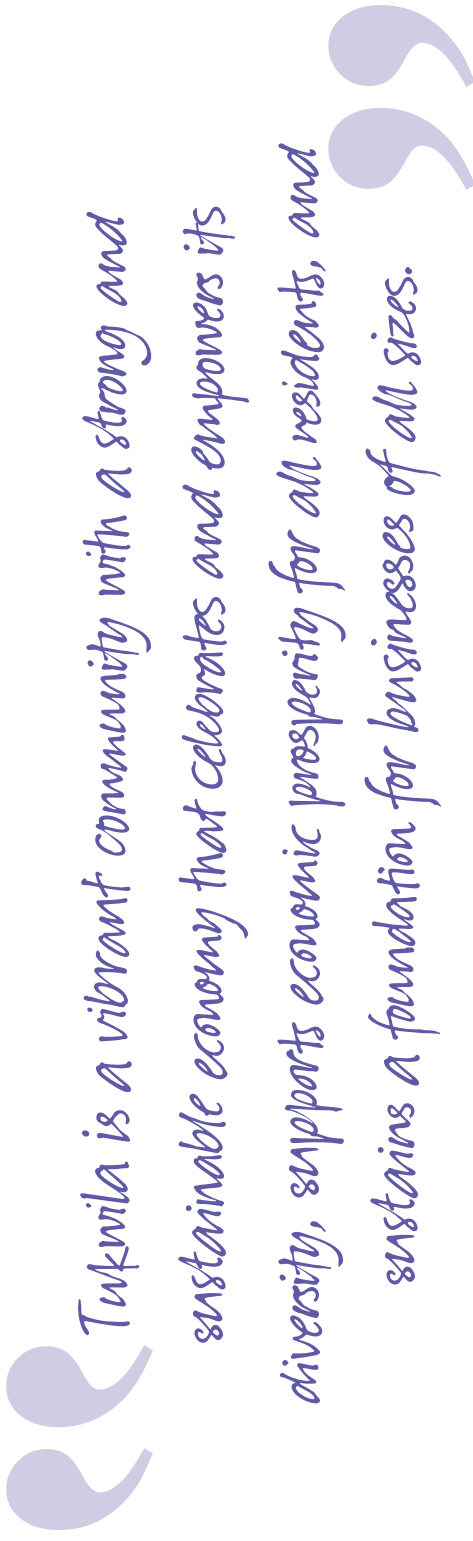 “Tukwila is a vibrant community with a strong and
sustainable economy that celebrates and empowers its
diversity, supports economic prosperity for all residents, and
sustains a foundation for businesses of all sizes.”